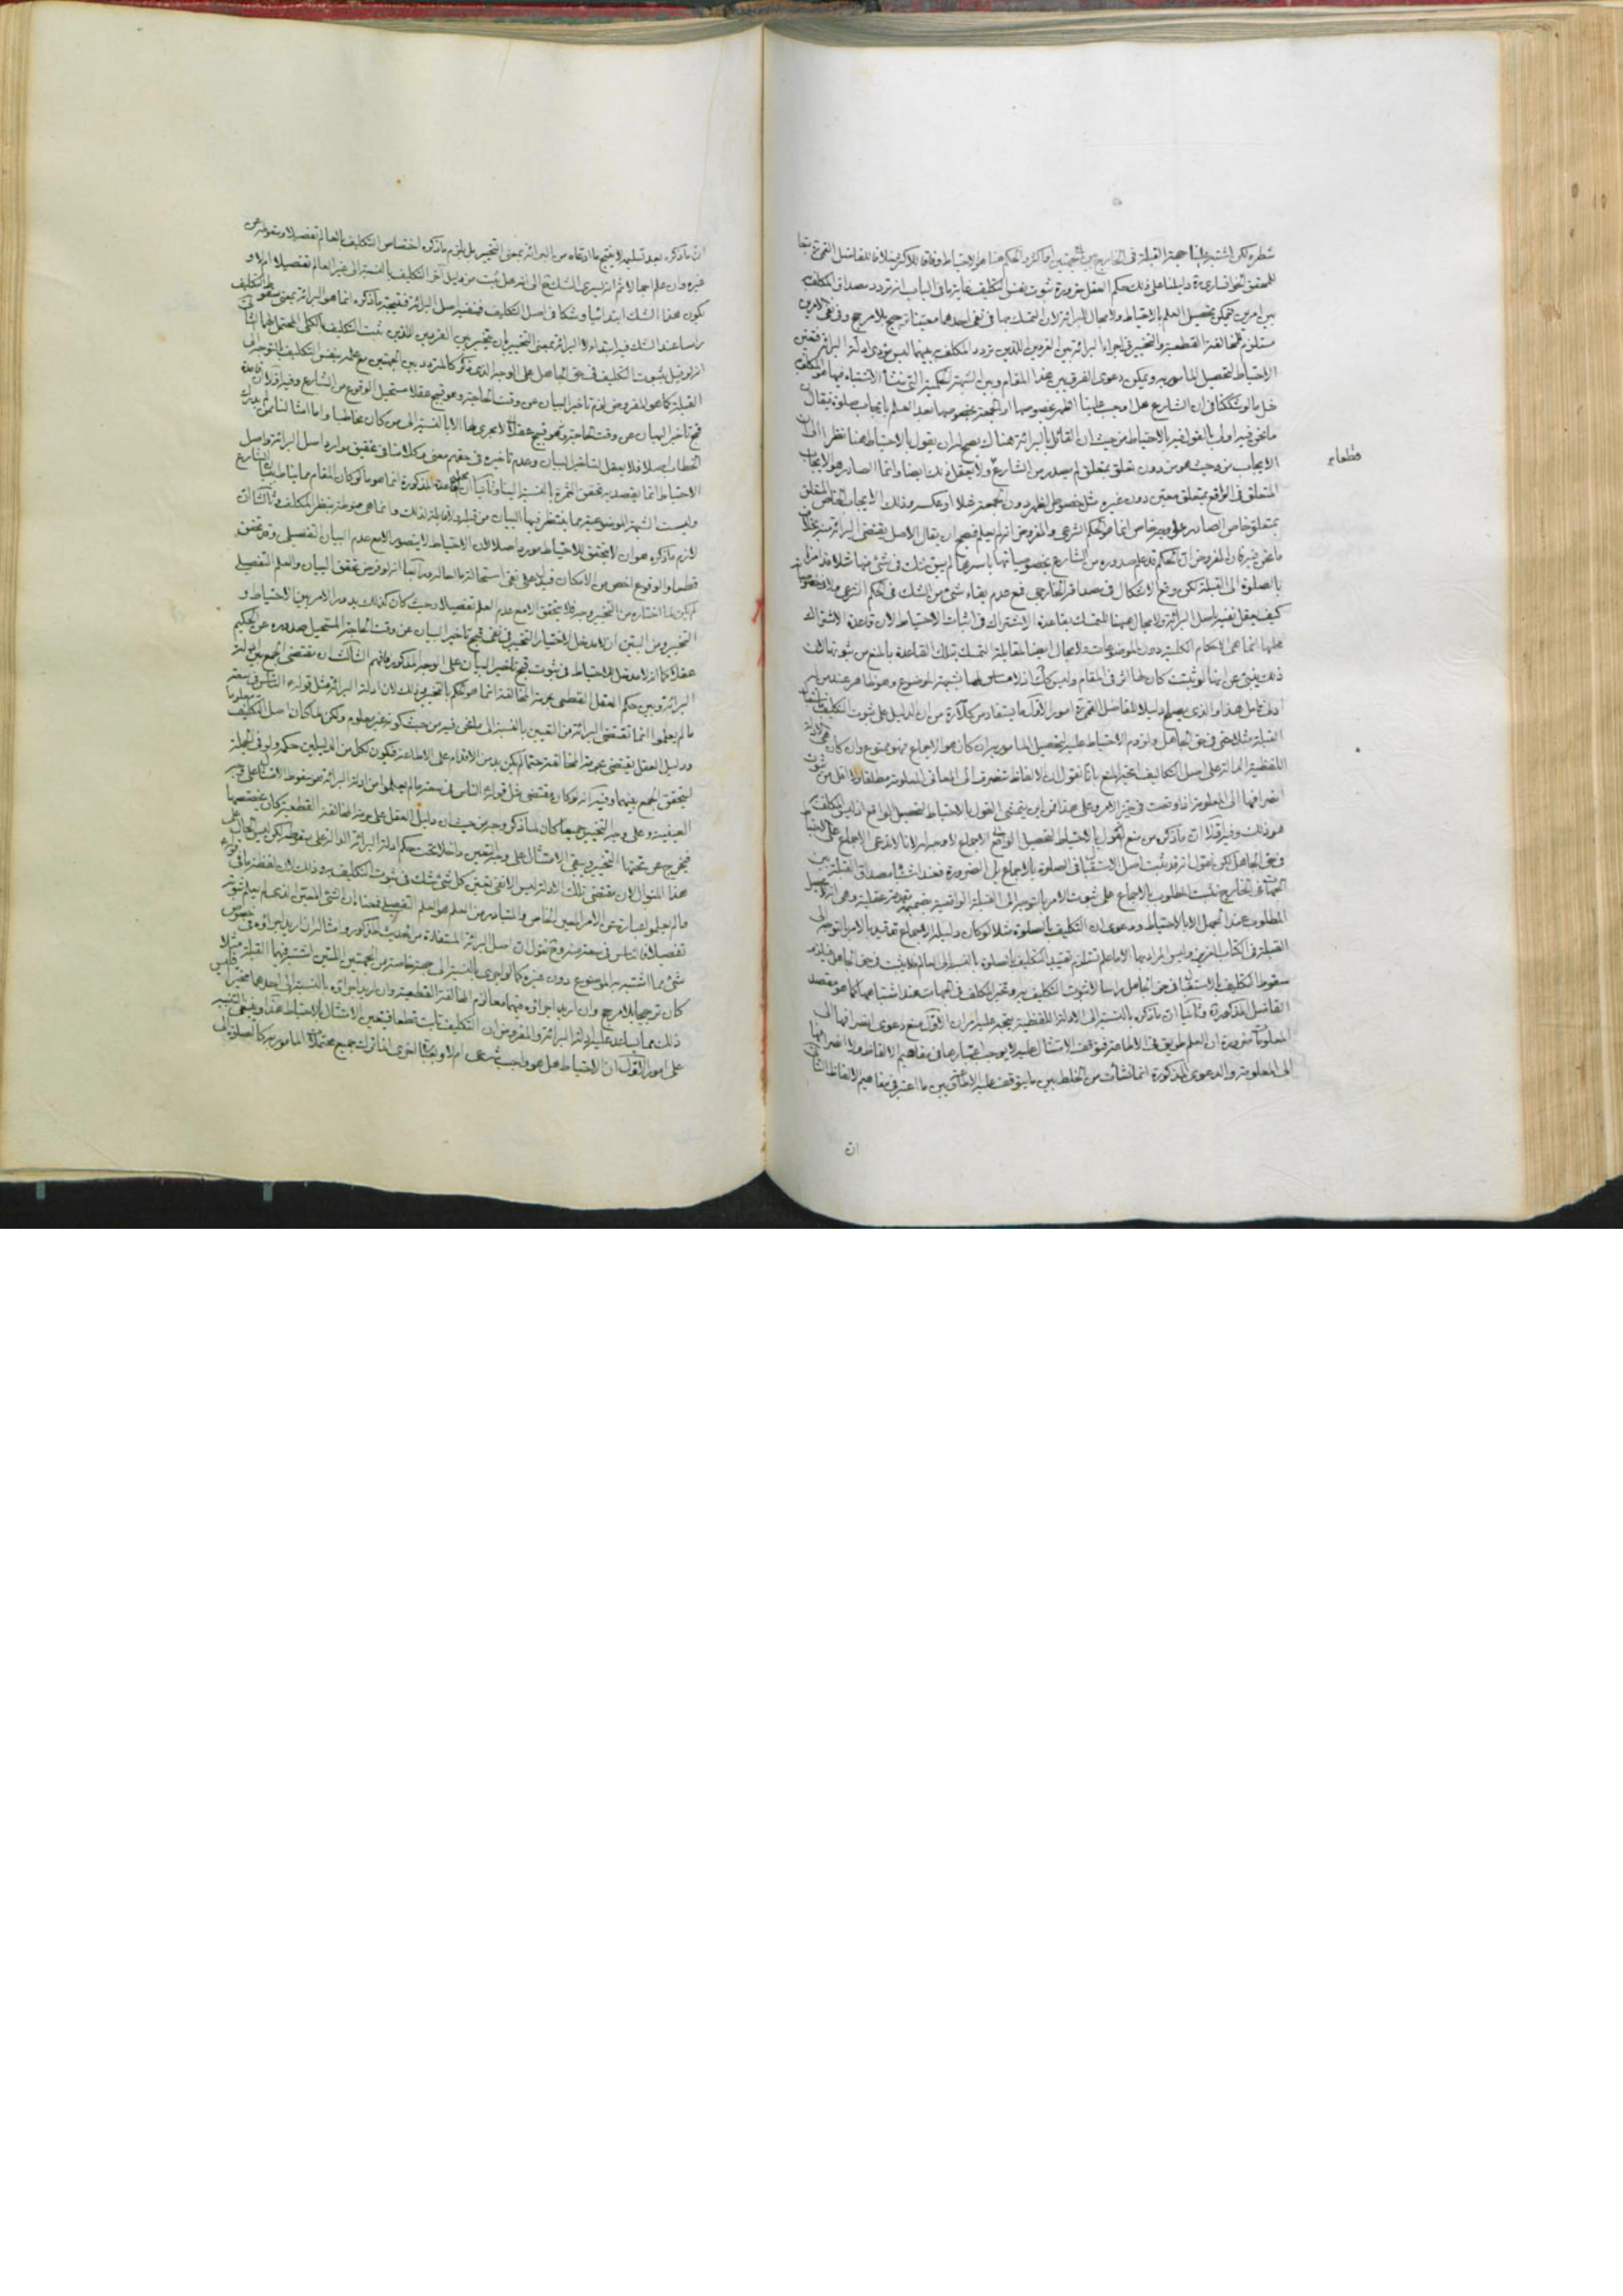 شطره لكن اشتبه علينا جهة القبلة في الخارج بين جهتين او اكثر والحكم هنا هو الاحتياط وفاقا للاكثر خلافا للفاضل القمي تبعا
للمحقق الخوانساري ره دليلنا على ذلك حكم العقل ضرورة ثبوت نفس التكليف غاية ما في الباب انه تردد مصداق المكلف به
بين امرين يمكن تحصيل العلم بالاحتياط ولا مجال للبرائة لان التمسك بها في نفي احدهما معينا ترجيح بلا مرجح وفي نفي الامرين
مستلزم للمخالفة القطعية والتخيير في اجراء البرائة بين الفردين اللذين تردد المكلف به بينهما ليس مؤدى ادلة البرائة فتعين
الاحتياط لتحصيل المأمور به ويمكن دعوى الفرق بين هذا المقام وبين الشبهة الحكمية التي نشأ الاشتباه فيها
مثل ما لو شككنا في ان الشارع هل اوجب علينا الظهر بخصوصها او الجمعة بخصوصها بعد العلم بايجاب صلوة فيقال ان
ما نحن فيه اولى بالقول فيه بالاحتياط من حيث ان القائل بالبرائة هناك يصح له ان يقول بالاحتياط هنا نظرا الى ان
الايجاب من حيث هو من دون تعلق بمتعلق لم يصدر من الشارع ولا يعقل ذلك ايضا وانما الصادر هو الايجاب
المتعلق في الواقع بمتعلق معين دون غيره مثل خصوص الظهر دون الجمعة مثلا او عكسه وذلك الايجاب الخاص المتعلق
بمتعلق خاص الصادر على وجه خاص انما هو الحكم الشرعي والمفروض انه لم يعلم فصح ان يقال الاصل يقتضي البرائة منه بخلاف
ما نحن فيه فان المفروض ان الحكم قد علم صدوره من الشارع بخصوصياتها باسرها لم يبق شك في شئ منها مثلا قد امرنا
بالصلوة الى القبلة لكن وقع الاشكال في مصداقه الخارجي فمع عدم بقاء شئ من الشك في الحكم الشرعي
كيف يعقل نفيه باصل البرائة ولا مجال هيهنا للتمسك بقاعدة الاشتراك في اثبات الاحتياط لان قاعدة الاشتراك
محلها انما هي الاحكام الكلية دون الموضوعات ولا مجال ايضا لمقابلة التمسك بتلك القاعدة بالمنع من ثبوتها لان
ذلك ينبئ عن انها لو ثبتت كان لها اثر في المقام وليس كك اذ لا مساس لها بشبهة الموضوع وهو ظاهر عند من له
ادنى تامل هذا والذي يصلح دليلا للفاضل القمي ره امور الاول ما يستفاد من كلامه من ان الدليل على ثبوت التكليف
القبلة مثلا حتى في حق الجاهل ولزوم الاحتياط عليه لتحصيل المأمور به ان كان هو الاجماع فهو ممنوع وان كان هي الادلة
اللفظية الدالة على اصل التكاليف يتجه المنع بانا نقول ان الالفاظ تنصرف الى المعاني المعلومة مطلقا ولا اقل من
انصرافها الى المعلومة اذا وقعت في حيز الامر وعلى هذا فمن اين يتمشى القول بالاحتياط لتحصيل الواقع اذ ليس المكلف به
هو ذلك وفيه اولا ان ما ذكره من منع القول بالاحتياط لتحصيل الواقع الاجماع لا وجه له لانا لا ندعي الاجماع على الاحتياط
في حق الجاهل لكن نقول انه قد ثبت اصل الاستقبال في الصلوة بالاجماع بل الضرورة فعند اشتباه مصداق القبلة بين
الجهات في الخارج يثبت المطلوب بالاجماع على ثبوت الامر بالتوجه الى القبلة الواقعية بضميمة مقدمة عقلية وهي انه لا يحصل
المطلوب عند الجهل الا بالاحتياط ودعوى ان التكليف بالصلوة مثلا لو كان دليله الاجماع تقييدها بالامر بالتوجه الى
القبلة في الكتاب العزيز وليس المراد بها الا ما علم تستلزم تقييد التكليف بالصلوة بالنسبة الى العالم فلا يثبت في حق الجاهل فيلزم
سقوط التكليف بالاستقبال في حق الجاهل راسا لا ثبوت التكليف به وتخير المكلف في الجهات عند اشتباهها كما هو مقصد
الفاضل المذكور ره وثانيا ان ما ذكره بالنسبة الى الادلة اللفظية يتجه عليه امران الاول منع دعوى انصرافها الى
المعلومات ضرورة ان العلم طريق في الاطاعة فتوقف الامتثال عليه لا يوجب اعتباره في مفاهيم الالفاظ ولا انصرافها
الى المعلومة والدعوى المذكورة انما نشأت من الخلط بين ما يتوقف عليه الامتثال وبين ما اعتبر في مفاهيم الالفاظ الثاني
ان
قطعا
ان ما ذكره بعد تسليمه لا ينتج ما ادعاه من البرائة بمعنى التخيير بل يلزم ما ذكره اختصاص التكليف بالعالم تفصيلا وسقوطه عن
غيره وان علم اجمالا ثم انه يسري الشك ح الى انه هل ثبت من دليل آخر التكليف بالنسبة الى غير العالم تفصيلا ام لا و
يكون هذا الشك ابتدائيا وشكا في اصل التكليف فننفيه باصل البرائة فنتيجة ما ذكره انما هو البرائة بمعنى سقوط التكليف
راسا عند الشك فيه ابتداء لا البرائة بمعنى التخيير بان يتخير بين الفردين اللذين ثبت التكليف بالكلي المحتمل لهما الثاني
انه لو قيل بثبوت التكليف في حق الجاهل على الوجه الذي ذكر كالمتردد بين الجهتين مع علمه بنفس التكليف بالتوجه الى
القبلة كما هو المفروض لزم تاخير البيان عن وقت الحاجة وهو قبيح عقلا مستحيل الوقوع من الشارع وفيه اولا ان قاعدة
قبح تاخير البيان عن وقت الحاجة وهو قبيح عقلا لا مجرى لها الا بالنسبة الى من كان مخاطبا واما امثالنا ممن لم يدرك
الخطاب اصلا فلا يعقل لتاخير البيان وعدم تاخيره في حقهم معنى وكلامنا في تحقيق موارد اصل البرائة واصل
الاحتياط انما يقصد به تحقق الثمرة بالنسبة الينا وثانيا ان القاعدة المذكورة انما هو ما لو كان المقام مما يناط ببيان الشارع
وليست الشبهة الموضوعية مما ينتظر فيها البيان من قبله ولا قابلة لذلك وانما هي منوطة بنظر المكلف وثالثا ان
لازم ما ذكره هو ان لا يتحقق للاحتياط مورد اصلا لان الاحتياط لا يتصور الا مع عدم البيان التفصيلي
قطعا والوقوع اخص من الامكان
لم يكن لما اختاره من التخيير وجه فلا يتحقق الا مع عدم العلم تفصيلا وحيث كان كذلك يدور الامر بين الاحتياط و
التخيير ومن البين ان لا مدخل لاختيار التخيير في نفي قبح تاخير البيان عن وقت الحاجة المستحيل صدوره عن الحكيم
عقلا كما انه لا مدخل للاحتياط في ثبوت قبح تاخير البيان على الوجه المذكور فافهم الثالث ان مقتضى الجمع بين ادلة
البرائة وبين حكم العقل القطعي بحرمة المخالفة انما هو الحكم بالتخيير وذلك لان ادلة البرائة مثل قوله ع الناس في سعة
ما لم يعلموا انما تقتضي البرائة من التعيين بالنسبة الى ما نحن فيه من حيث كونه غير معلوم ولكن لما كان اصل التكليف معلوما
ودليل العقل يقتضي بحرمة المخالفة حتما لم يكن بد من الاقدام على الاطاعة فيكون لكل من الدليلين حكمه ولو في الجملة
ليتحقق الجمع بينهما وفيه انه لو كان مقتضى مثل قوله ع الناس في سعة ما لم يعلموا من ادلة البرائة هو سقوط الامتثال على وجه
العينية وعلى وجه التخيير جميعا كان لما ذكر وجه من حيث ان دليل العقل على حرمة المخالفة القطعية كان يخصصها
فيخرج عن تحتها التخيير ويبقى الامتثال على وجه التعيين داخلا تحت حكم ادلة البرائة الدالة على سقوطه لكن ليس الحال على
هذا المنوال لان مقتضى تلك الادلة ليس الا نفي تعيين كل شئ شك في ثبوت التكليف به وذلك لان لفظة ما في قوله ع
ما لم يعلموا عبارة عن الامر المعين الخاص والمتبادر من العلم هو العلم التفصيلي فمعناه ان الشئ المعين الذي لم يعلم ثبوته
تفصيلا فان الناس في سعة منه وح نقول ان اصل البرائة المستفادة من الحديث المذكور وامثاله ان اريد اجراؤه في خصوص
شئ مما اشتبه به الموضوع دون غيره كما لو اجرى بالنسبة الى جهة خاصة من الجهتين اللتين اشتبه فيهما القبلة مثلا
كان ترجيحا بلا مرجح وان اريد اجراؤه فيهما معا لزم المخالفة القطعية وان اريد اجراؤه بالنسبة الى احدهما مخيرا فليس
ذلك مما يساعد عليه ادلة البرائة والمفروض ان التكليف ثابت قطعا فيتعين الامتثال بالاحتياط هذا وينبغي التنبيه
على امور الاول ان الاحتياط هل هو واجب شرعي ام لا وبعبارة اخرى اذا ترك جميع محتملات المأمور به كالصلوة الى